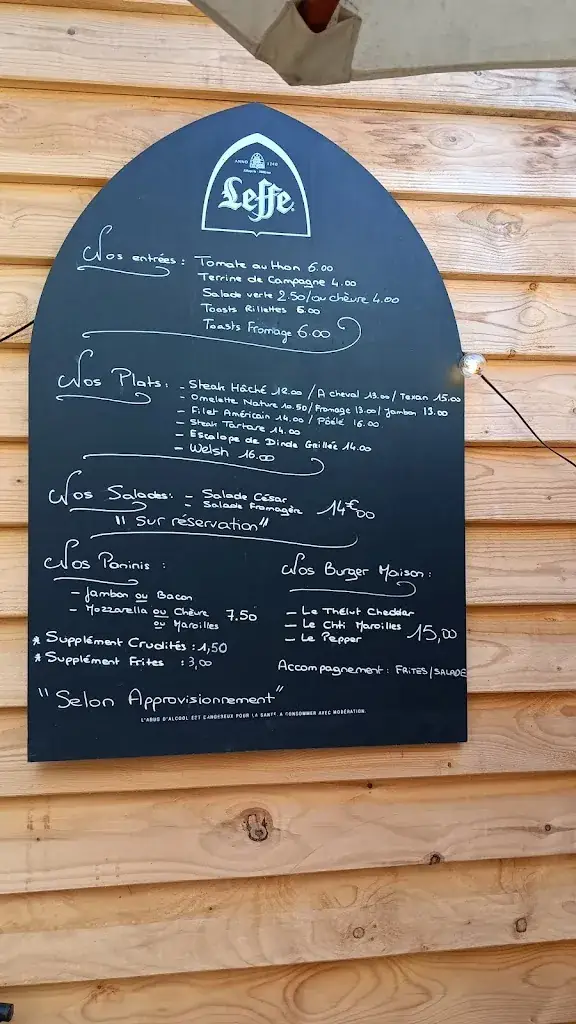 ANNO 1240
Leffe.
Nos entrées : Tomate au thon 6.00
Terrine de Campagne 4.00
Salade verte 2.50/ou chèvre 4.00
Toasts Rillettes 6.00
Toasts Fromage 6.00
Nos Plats : - Steak Hâché 12.00 / A cheval 13.00 / Texan 15.00
- Omelette Nature 10.50/Fromage 13.00/Jambon 13.00
- Filet Américain 14.00 / Pôélé 16.00
- Steak Tartare 14.00
- Escalope de Dinde Grillée 14.00
- Welsh 16.00
Nos Salades : - Salade César
- Salade Fromagère 14€00
"Sur réservation"
Nos Paninis :
- Jambon ou Bacon
- Mozzarella ou Chèvre 7.50
ou Maroilles
* Supplément Crudités : 1,50
* Supplément Frites : 3,00
Nos Burger Maison :
- Le Thélut Cheddar
- Le Chti Maroilles 15,00
- Le Pepper
Accompagnement : FRITES/SALADE
"Selon Approvisionnement"
L'ABUS D'ALCOOL EST DANGEREUX POUR LA SANTÉ. A CONSOMMER AVEC MODÉRATION.